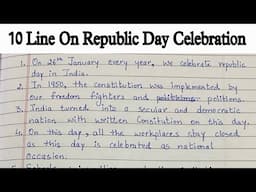 10 Line On Republic Day Celebration
1. On 26th January every year, we celebrate republic
day in India.
2. In 1950, the constitution was implemented by
our freedom fighters and politions.
3. India turned into a secular and democratic
nation with written Constitution on this day.
4. On this day, all the workplaces stay closed
as this day is celebrated as national
occasion.